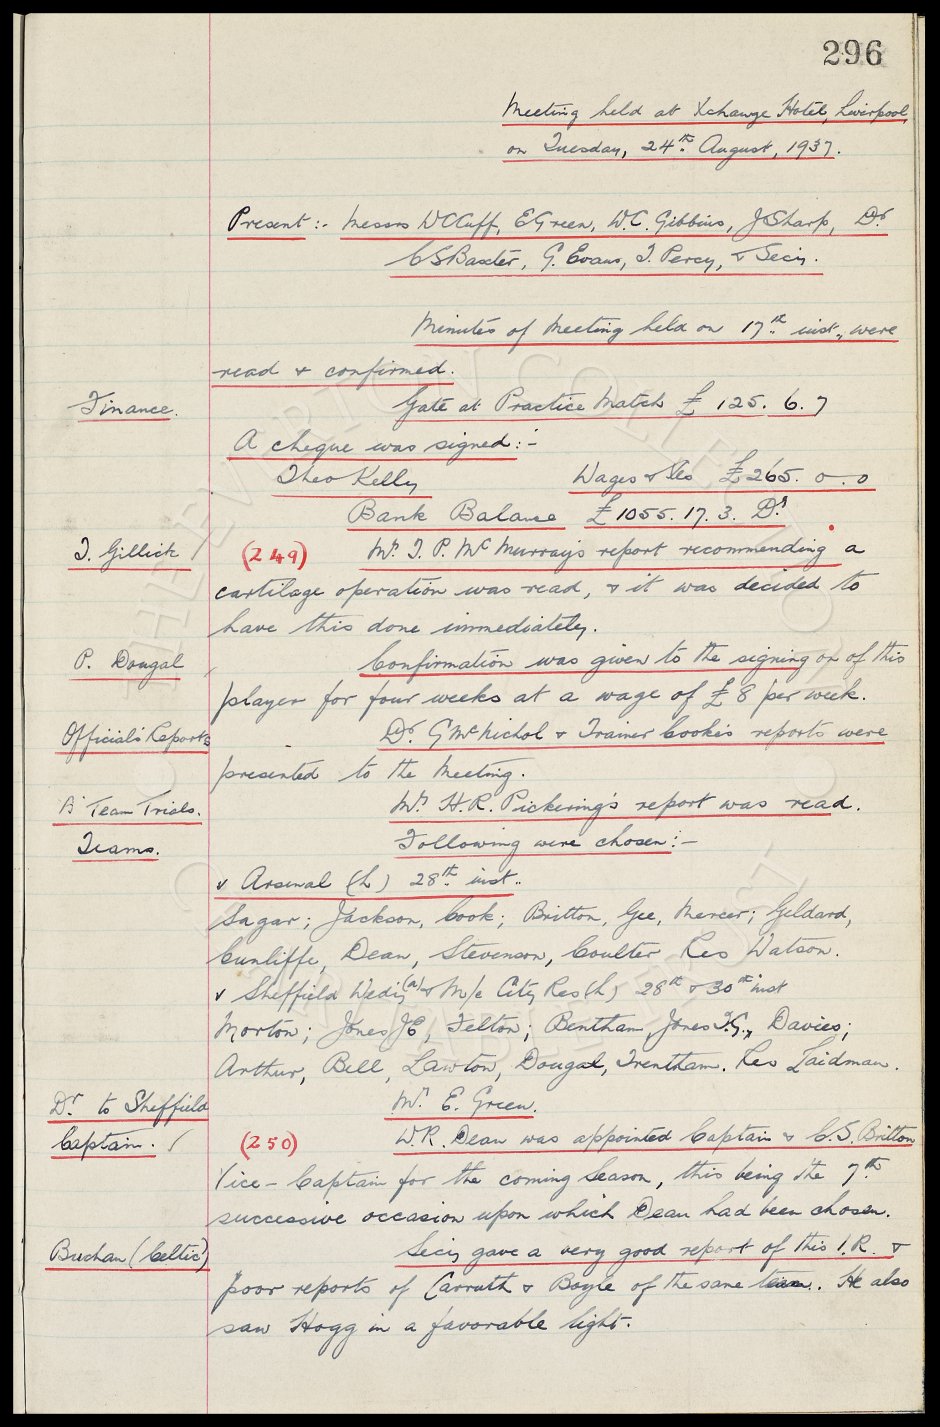 296
Meeting held at Xchange Hotel, Liverpool,
on Tuesday, 24th August, 1937.
Present:- Messrs WC Cuff, E Green, W.C. Gibbins, J Sharp, Dr
C S Baxter, G. Evans, T. Percy, & Secy.
Minutes of Meeting held on 17th inst., were
read & confirmed.
Finance. Gate at Practice Match £125. 6. 7
A cheque was signed:-
Theo Kelly Wages & Exs £265. 0. 0
Bank Balance £1055. 17. 3. Dr
T. Gillick / (249) Mr T. P. McMurray's report recommending a
cartilage operation was read, & it was decided to
have this done immediately.
P. Dougal Confirmation was given to the signing on of this
player for four weeks at a wage of £8 per week.
Official's Reports Dr. G McNichol & Trainer Cooke's reports were
presented to the Meeting.
'A' Team Trials. Mr. H.R. Pickering's report was read.
Teams. Following were chosen:-
v Arsenal (h) 28th inst..
Sagar; Jackson, Cook; Britton, Gee, Mercer; Geldard,
Cunliffe, Dean, Stevenson, Coulter Res Watson.
v Sheffield Wedy (a) & M/c City Res (h) 28th & 30th inst
Morton; Jones JE, Felton; Bentham, Jones T.G., Davies;
Arthur, Bell, Lawton, Dougal, Trentham. Res Laidman.
Dr to Sheffield Mr E. Green.
Captain. / (250) W.R. Dean was appointed Captain & C.S. Britton
Vice-Captain for the coming Season, this being the 7th
successive occasion upon which Dean had been chosen.
Buchan (Celtic) Secy gave a very good report of this I.R. &
poor reports of Carruth & Boyle of the same team. He also
saw Hogg in a favorable light.